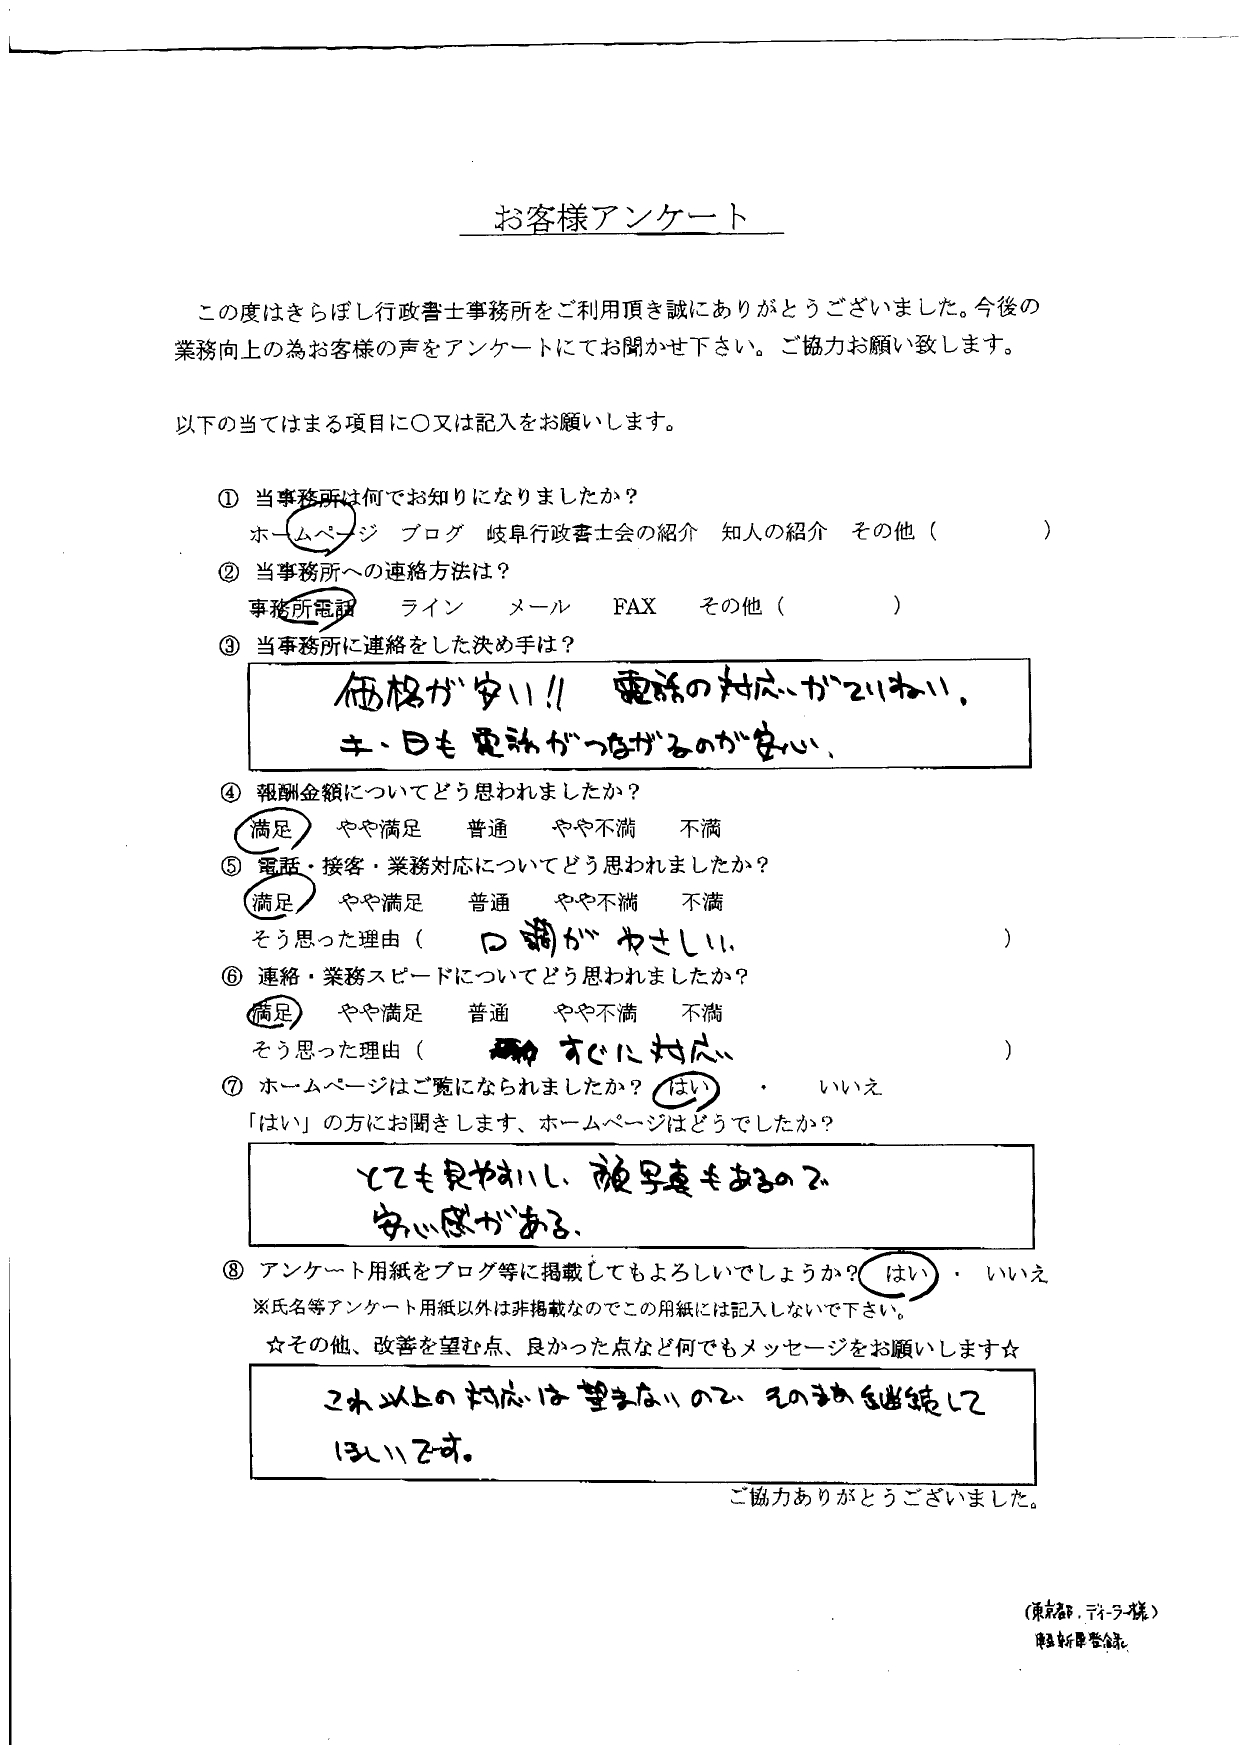 お客様アンケート
この度はきらぼし行政書士事務所をご利用頂き誠にありがとうございました。今後の
業務向上の為お客様の声をアンケートにてお聞かせ下さい。ご協力お願い致します。
以下の当てはまる項目に○又は記入をお願いします。
① 当事務所は何でお知りになりましたか?
ホームページ ブログ 岐阜行政書士会の紹介 知人の紹介 その他( )
② 当事務所への連絡方法は?
事務所電話 ライン メール FAX その他( )
③ 当事務所に連絡をした決め手は?
価格が安い!! 電話の対応がていねい。
土・日も電話がつながるのが安心、
④ 報酬金額についてどう思われましたか?
満足 やや満足 普通 やや不満 不満
⑤ 電話・接客・業務対応についてどう思われましたか?
満足 やや満足 普通 やや不満 不満
そう思った理由( 口調がやさしい、 )
⑥ 連絡・業務スピードについてどう思われましたか?
満足 やや満足 普通 やや不満 不満
そう思った理由( すぐに対応 )
⑦ ホームページはご覧になられましたか? はい ・ いいえ
「はい」の方にお聞きします、ホームページはどうでしたか?
とても見やすいし、顔写真もあるので
安心感がある、
⑧ アンケート用紙をブログ等に掲載してもよろしいでしょうか? はい ・ いいえ
※氏名等アンケート用紙以外は非掲載なのでこの用紙には記入しないで下さい。
☆その他、改善を望む点、良かった点など何でもメッセージをお願いします☆
これ以上の対応は望まないので そのまま継続して
ほしいです。
ご協力ありがとうございました。
(東京都、ディーラー様)
軽新車登録